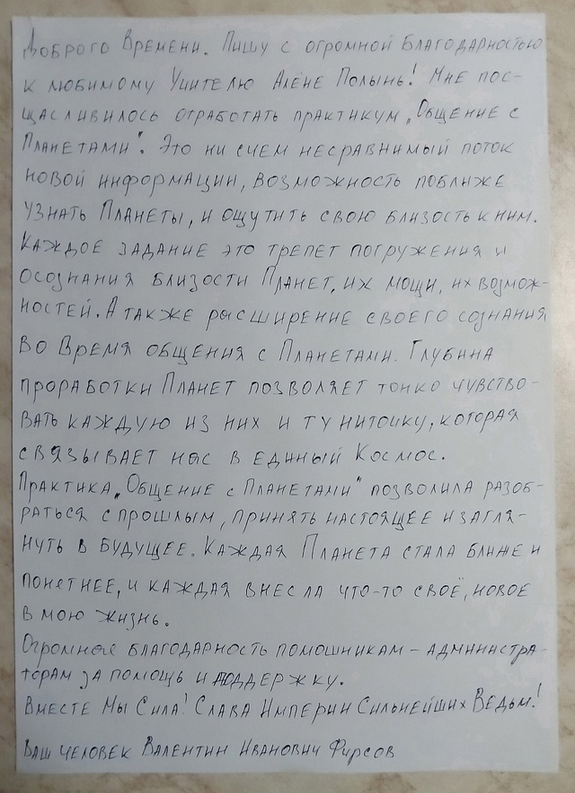 Доброго Времени. Пишу с огромной благодарностью
к любимому Учителю Алёне Полынь! Мне пос-
щасливилось отработать практикум „Общение с
Планетами". Это ни счем несравнимый поток
новой информации, возможность поближе
узнать Планеты, и ощутить свою близость к ним.
Каждое задание это трепет погружения и
осознания близости Планет, их мощи, их возмож-
ностей. А также расширение своего сознания
во Время общения с Планетами. Глубина
проработки Планет позволяет тонко чувство-
вать каждую из них и ту ниточку, которая
связывает нас в единый Космос.
Практика „Общение с Планетами" позволила разоб-
раться с прошлым, принять настоящее и загля-
нуть в будущее. Каждая Планета стала ближе и
понятнее, и каждая внесла что-то своё, новое
в мою жизнь.
Огромная благодарность помошникам - администра-
торам за помощь и поддержку.
Вместе Мы Сила! Слава Империи Сильнейших Ведьм!
Ваш человек Валентин Иванович Фирсов